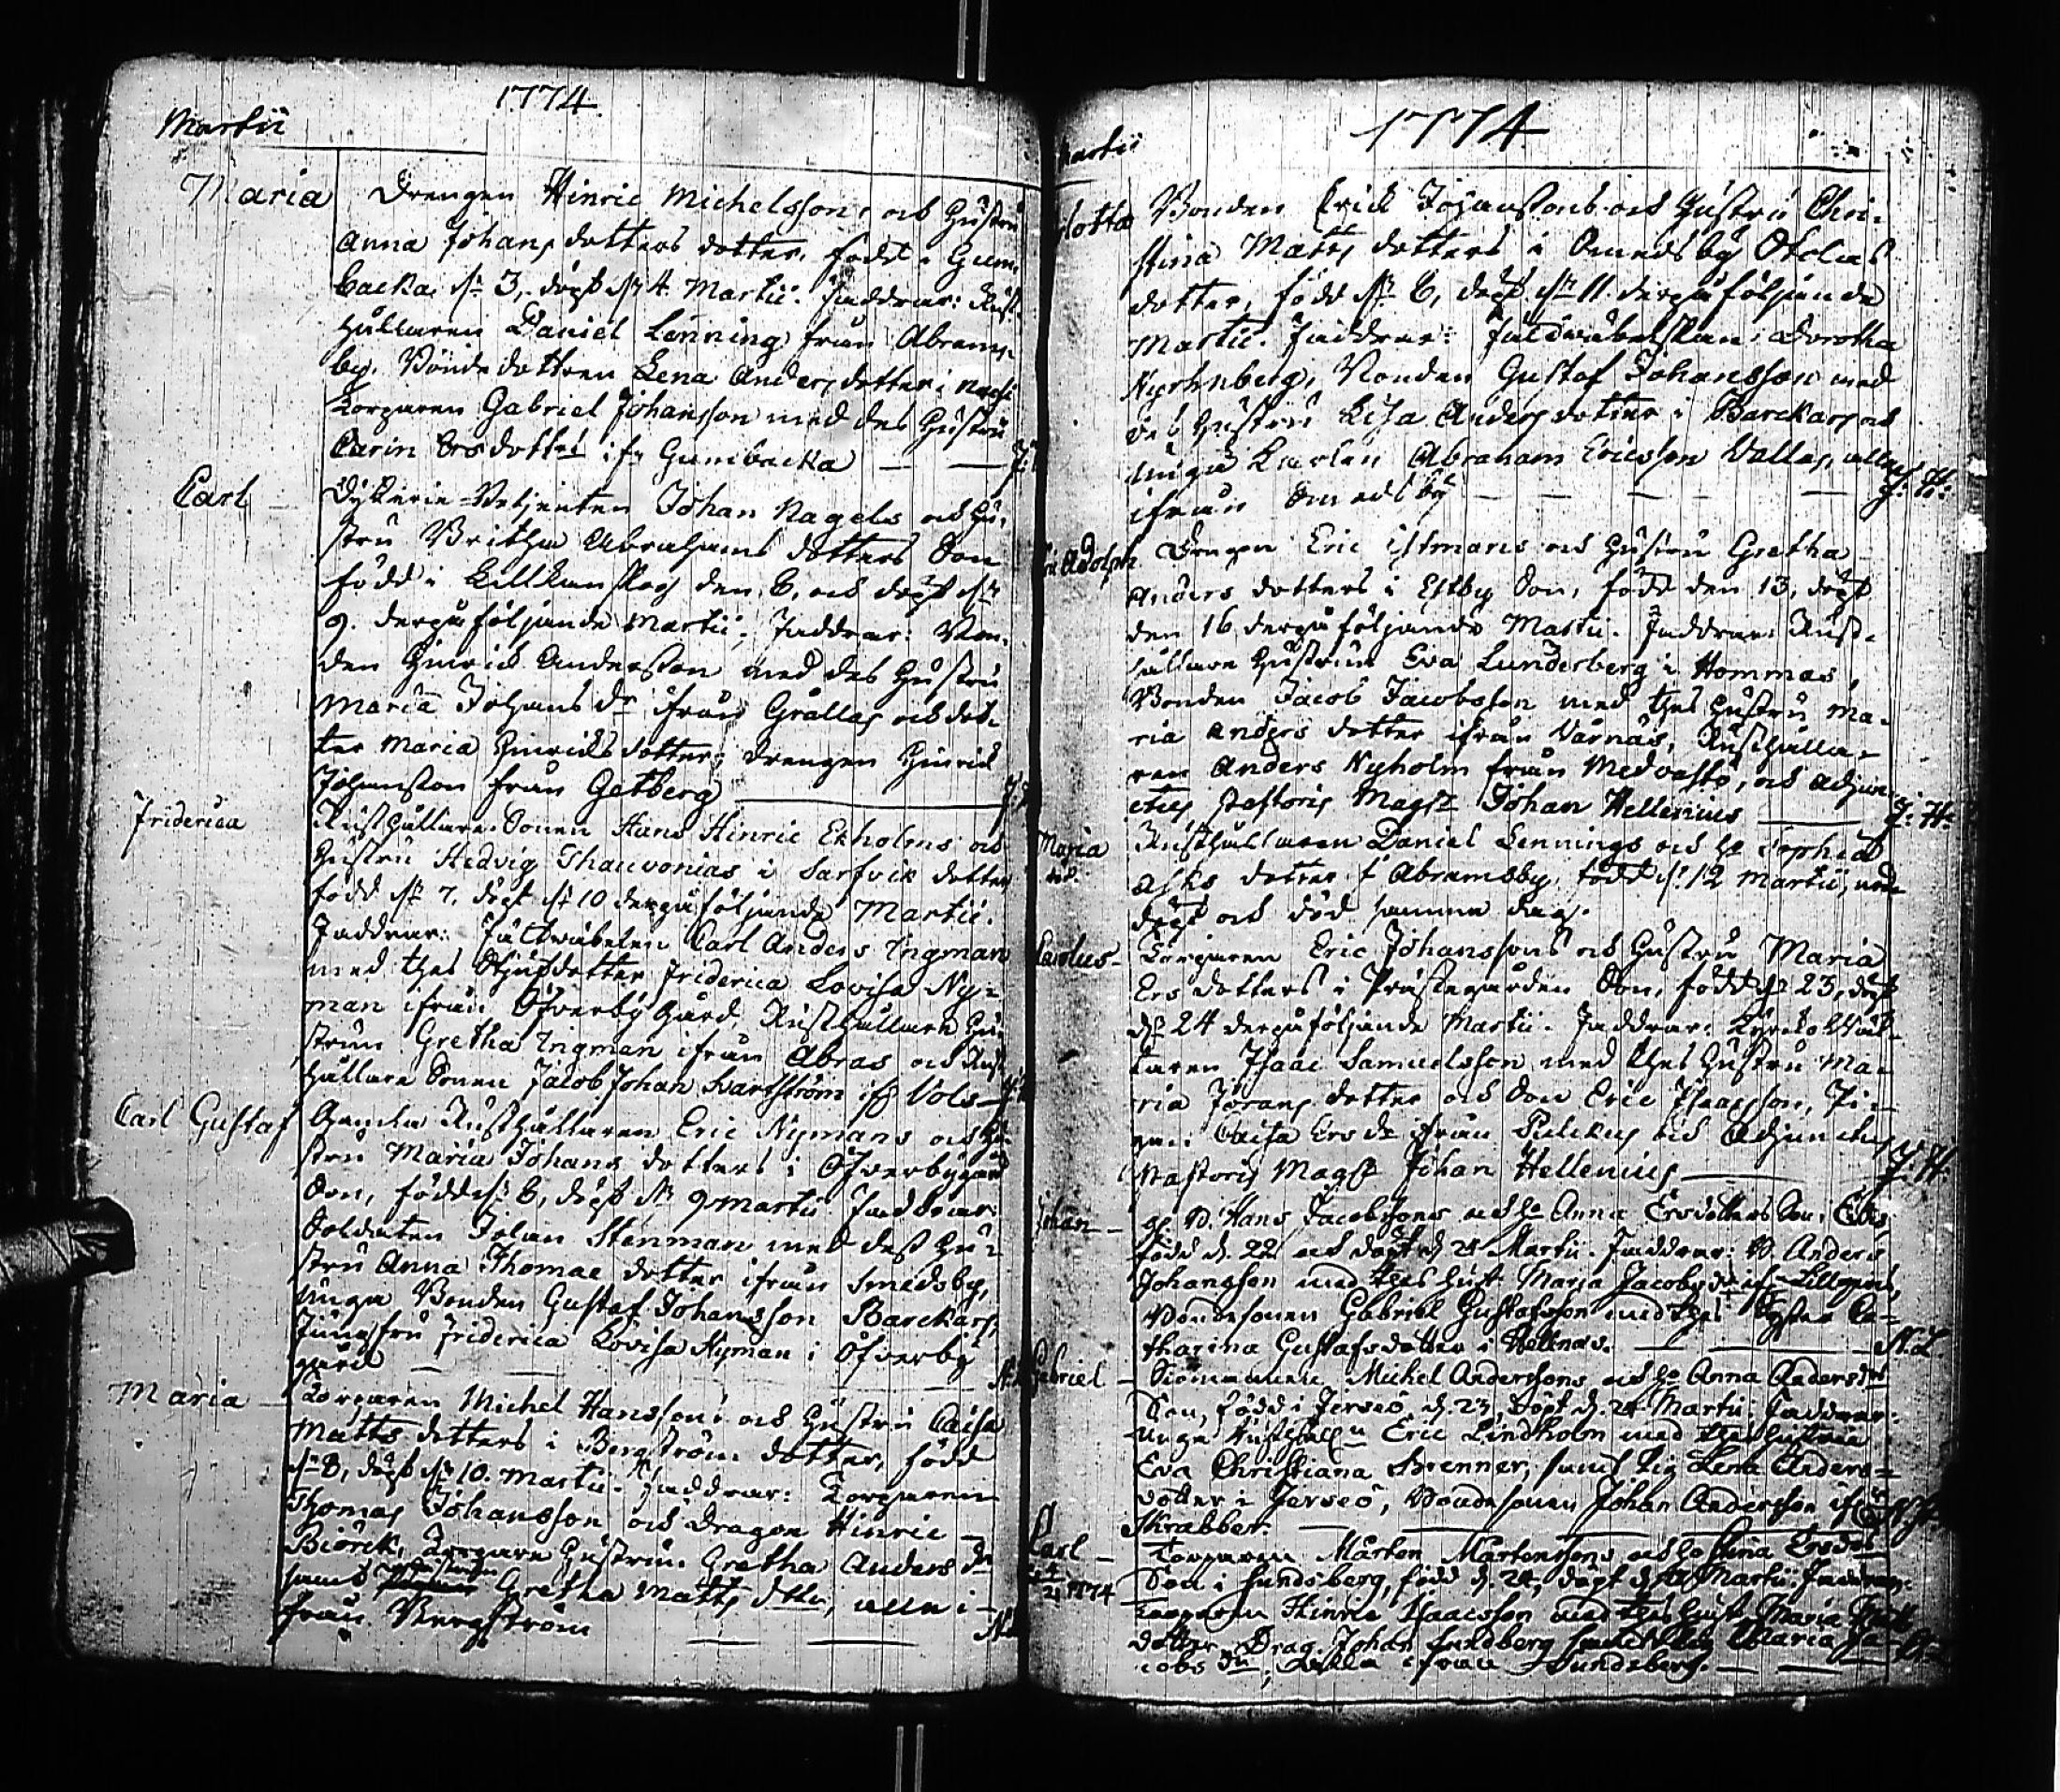 1774.
Martii
Maria Drengen Hinric Michelssons och Hustru
Anna Johans dotters dotter, född i Gum-
backa dn 3, döpt dn 4 Martii. Faddrar: Rust-
hållaren Daniel Lenning från Abrams-
by. Bondedottren Lena Anders dotter i
Torparen Gabriel Johansson med des Hustru
Carin Ersdotter ifn Gumbacka — —
Carl — Betjenten Johan Nagels och Hu-
stru Britha Abrahams dotters Son
född i Lillkanskog den 6, och döpt dn
9. derpåföljande Martii. Faddrar: Bon-
den Hinrick Andersson med des Hustru
Maria Johans dr ifrån Grållas och dot-
ter Maria Hinricksdotter, drengen Hinrick
Johansson från Getberg —
Friderica Rusthållare Sonen Hans Hinric Ekholms och
Hustru Hedvig Thauvonias i Sarfvik dotter
född dn 7, döpt dn 10 derpåföljande Martii.
Faddrar: Fältwäbelen Carl Anders Ingman
med thes Stjufdotter Friderica Lovisa Ny-
man ifrån Öfverby Gård, Rusthållare Hu-
strun Gretha Ingman ifrån Abras och Rust-
hållare Sonen Jacob Johan Svartström ifr Vols —
Carl Gustaf Gamla Rusthållaren Eric Nymans och Hu-
stru Maria Johans dotters i Öfverbygård
Son, född dn 6, döpt dn 9 Martii Faddrar:
Soldaten Johan Stenman med dess Hu-
stru Anna Thomae dotter ifrån Smedsby,
Unga Bonden Gustaf Johansson Barckars,
Jungfru Friderica Lovisa Nyman i Öfverby
gård — — —
Maria — Torparen Michel Hanssons och Hustru Caisa
Matts dotters i Bergström dotter, född
dn 8, döpt dn 10. Martii. Faddrar: Torparen
Thomas Johansson och Dragon Hinric
Biörck, Torpare Hustrun Gretha Anders dr
samt Gretha Matts dtter, alla i-
från Bergström — —
1774.
Martii
Bonden Erick Johanssons och Hustru Chri-
stina Matts dotters i Smedsby
dotter, född dn 6, döpt dn 11 derpåföljande
Martii. Faddrar: Fältwäbelskan Dorothea
Bonden Gustaf Johansson med
des Hustru Lisa Anders dotter i Barckars och
unga Abraham Ericsson Vallas, alla
ifrån Smedsby — — — — J: H:
Adolph Drengen Eric Estmans och Hustru Gretha
Anders dotters i Estby Son, född den 13, döpt
den 16 derpåföljande Martii. Faddrar: Rust-
hållare Hustrun Eva Lunderberg i Hommas,
Bonden Jacob Jacobsson med thes Hustru Ma-
ria Anders dotter ifrån Vårnäs, Rusthålla-
ren Anders Nyholm från Medvastö, och Adjun-
ctus Pastoris Magr Johan Hellenius — J: H:
Maria Rusthållaren Daniel Lennings och H. Sophia
Asks dotter i Abramsby, född d. 12 Martii,
döpt och död samma dag.
Carolus — Torparen Eric Johanssons och Hustru Maria
Ers dotters i Prästegården Son, född dn 23, döpt
dn 24 derpåföljande Martii. Faddrar: Kyrko Wäk-
taren Isaac Samuelsson med thes Hustru Ma-
ria Jörans dotter och Son Eric Isaacsson, Pi-
gan Caisa Ers dr ifrån och Adjunctus
Pastoris Magr Johan Hellenius — J: H:
Johan — B. Hans Jacobssons och H. Anna Ersdotters Son i
född d. 22 och döpt d. 24 Martii. Faddrar: B. Anders
Johansson med thes Hust. Maria Jacobs dr ifr
Bondesonen Gabriel Gustafsson med thes Syster Ca-
tharina Gustafsdotter i Hellnäs. — — N. L.
Gabriel — Siömannen Michel Anderssons och H. Anna Andersdrs
Son, född i Jerseö, d. 23, döpt d. 24 Martii. Faddrar:
unga Eric Lindholm med thes Hustru
Eva Christiana Brenner, samt Pig. Lena Anders-
dotter i Jerseö, Bondesonen Johan Andersson ifr
Skrabber. — — —
Carl — Torparen Mårten Mårtenssons och H. Stina Ersdrs
Son i Sundsberg, född d. 24, döpt d. Martii. Faddrar:
1774
Torparen Hinric Isaacsson med thes Hust. Maria
dotter, Drag. Johan Sundberg samt Maria Ja-
cobs dr, alla ifrån Sundsberg. — —